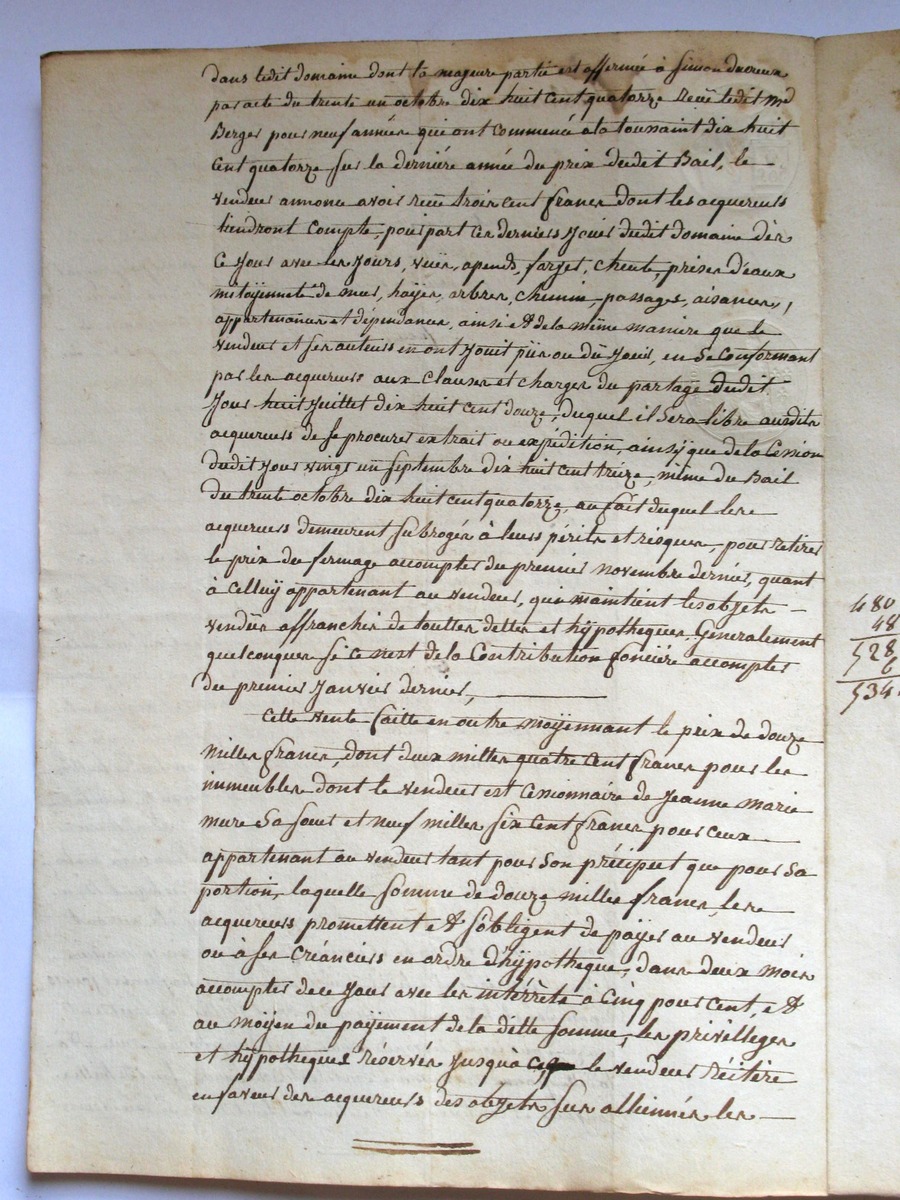 dans ledit domaine dont la majeure partie est affermée à Simon ducreux
par acte du trente un octobre dix huit cent quatorze Reçû ledit Md
Berger pour neuf années qui ont commencé a la toussaint dix huit
Cent quatorze sur la derniére année du prix dudit Bail, le
vendeur annonce avoir reçû trois cent francs dont les acquereurs
tiendront Compte, pour par ces derniers Jouir dudit domaine dès
Ce Jour avec les Jours, vuës, apends, forjet, cheute, prises d'eaux
mitoÿenneté de mur, haÿes, arbres, chemin, passages, aisances,
appartenances et dépendances, ainsi & de la même maniere que le
vendeur et ses auteurs en ont Jouit pûs ou dû Jouir, en se Conformant
par les acquereurs aux Clauses et charges du partage dudit
Jour huit Juillet dix huit cent douze, duquel il sera libre auxdits
acquereurs de se procurer extrait ou expédition, ainsÿ que de la Cession
dudit Jour vingt un septembre dix huit cent treize, même du Bail
du trente octobre dix huit cent quatorze, au fait duquel les
acquereurs demeurent subrogés à leurs périls et risques, pour retirer
le prix du fermage accompter du premier novembre dernier, quant
à Celluÿ appartenant au vendeur, qui maintient les objets
vendûs affranchis de touttes dettes et hÿpotheques Generalement
quelconques si ce n'est de la Contribution fonciére accompter
du premier Janvier dernier,
Cette vente faitte en outre moÿennant le prix de douze
milles francs, dont deux milles quatre Cent francs pour les
immeubles dont le vendeur est Cessionnaire de Jeanne marie
mure Sa sœur et Neuf milles six Cent francs pour ceux
appartenant au vendeur tant pour Son précipût que pour Sa
portion, laquelle somme de douze milles francs, les
acquereurs promettent & s'obligent de païer au vendeur
ou à ses Créanciers en ordre d'hÿpotheque, dans deux mois
accompter de ce Jour avec les intérrêts à Cinq pour Cent, &
au moÿen du paÿement de la ditte somme, les privilleges
et hÿpotheques réservés Jusqu'à ce, le vendeur Réitére
en faveur des acquereurs des objets sur alliennés les
480
48
528
6
534